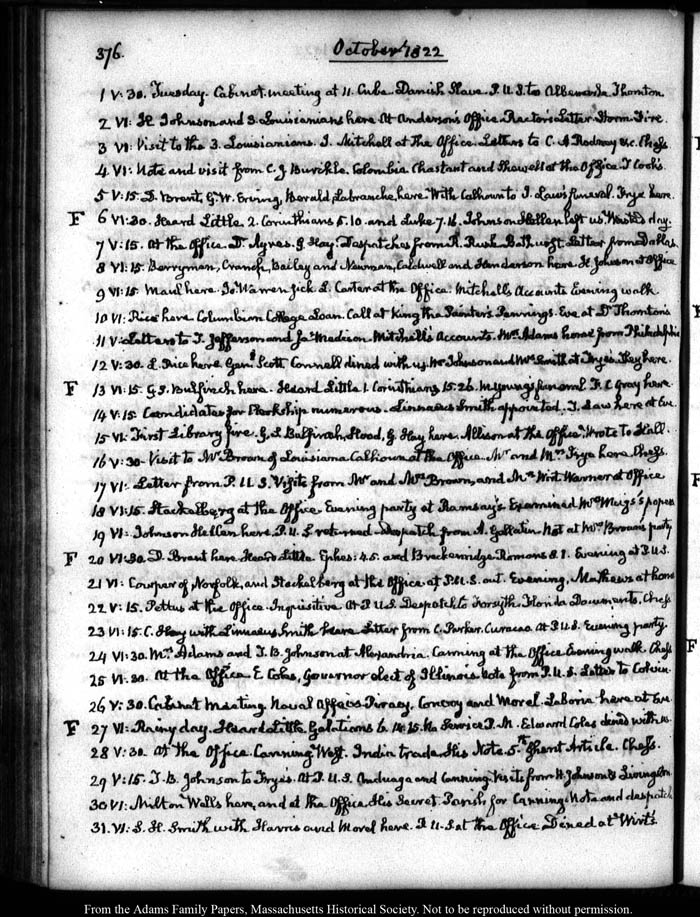 376.
October 1822
1 V:30. Tuesday. Cabinet meeting at 11. Cuba. Danish Slave. P.U.S. to Albemarle. Thornton
2 VI: H. Johnson and 3. Louisianians here. At Anderson's Office. Rector's Letter. Storm. Fire.
3 VI: Visit to the 3. Louisianians. J. Mitchell at the Office. Letters to C. A Rodney &c. Chess
4 VI: Note and visit from C. J Burckle. Colombia Chastant and Thowell at the Office. T Cook's.
5 V:15. D. Brent, G. W. Erving, Herald, Labranche, here. With Calhoun to T. Law's funeral. Frye here.
F 6 VI:30. Heard Little 2. Corinthians 5.10. and Luke 7.16. Johnson Hellen left us. Wasted day.
7 V:15. At the Office Dr. Ayres. G. Hay. Despatches from R. Rush. Bathurst. Letter from Dallas.
8 VI:15. Berryman, Cranch, Bailey and Newman, Caldwell and Henderson here. H. Johnson at Office
9 VI:15. Maul here. Jo. Warren sick L. Carter at the Office. Mitchell's Accounts Evening walk
10 VI: Rice here Columbian College Loan. Call at King the Painter's Pennings. Eve at Dr Thornton's
11 V: Letters to T. Jefferson and Ja: Madison. Mitchell's Accounts. Mrs. Adams home from Philadelphia
12 V:30. L. Rice here Genl. Scott Connell dined with us. Mr Johnson and Mr. Smith at Frye's. They here.
F 13 VI:15. G. S. Bulfinch here. Heard Little 1. Corinthians 15.26. funeral F. C. Gray here.
14 V:15. Candidates for Clerkship numerous. Linnaeus Smith appointed. T. Law here at Eve.
15 VI: First Library fire. G. S. Bulfinch, Hood, G. Hay here. Allison at the Office. Wrote to Hall.
16 V:30. Visit to Mr. Brown of Louisiana Calhoun at the Office. Mr and Mrs. Frye here. Chess.
17 VI: Letter from P. U. S. Visits from Mr and Mrs Brown, and Mrs. Wirt. Warner at Office
18 VI:15. Stackelberg at the Office. Evening party at Ramsay's. Examined Mrs Meigs's papers
19 VI: Johnson Hellen here. P. U. S. returned. Despatch from A. Gallatin. Not at Mrs Brown's party
F 20 VI:30. D. Brent here. Heard Little. Ephes: 4.5. and Breckenridge. Romans 8.1. Evening at P.U.S.
21 VI: Cowper of Norfolk, and Stackelberg at the Office. at P.U.S. out. Evening. Mathews at home
22 V:15. Pettus at the Office. Inquisitive At P.U.S. Despatch to Forsyth. Florida Documents. Chess
23 VI:15. C. Hay with Linnaeus Smith here. Letter from C. Parker. Curacao. At P.U.S. Evening party.
24 VI:30. Mrs. Adams and T. B. Johnson at Alexandria. Canning at the Office Evening walk. Chess
25 VI:30. At the Office E Coles, Governor elect of Illinois. Note from P. U. S. Letter to Colvin.
26 V:30. Cabinet meeting Naval Officers Piracy. Conway and Morel. Laborie here at Eve
F 27 VI: Rainy day. Heard Little Galatians 6. 14. 15. No service P. M. Edward Coles dined with us.
28 V:30. At the Office. Canning West. India trade. His Note. 5th. Ghent Article. Chess.
29 V:15. T. B. Johnson to Frye's. At P. U. S. Anduaga and Canning. Visits from H. Johnson & Livingston
30 VI: Milton Wells here, and at the Office. His Secret. Parish, for Canning. Note and despatch
31. VI: S. H. Smith with Harris and Morel here. P. U. S at the Office. Dined at Wirt's.
F
From the Adams Family Papers, Massachusetts Historical Society. Not to be reproduced without permission.